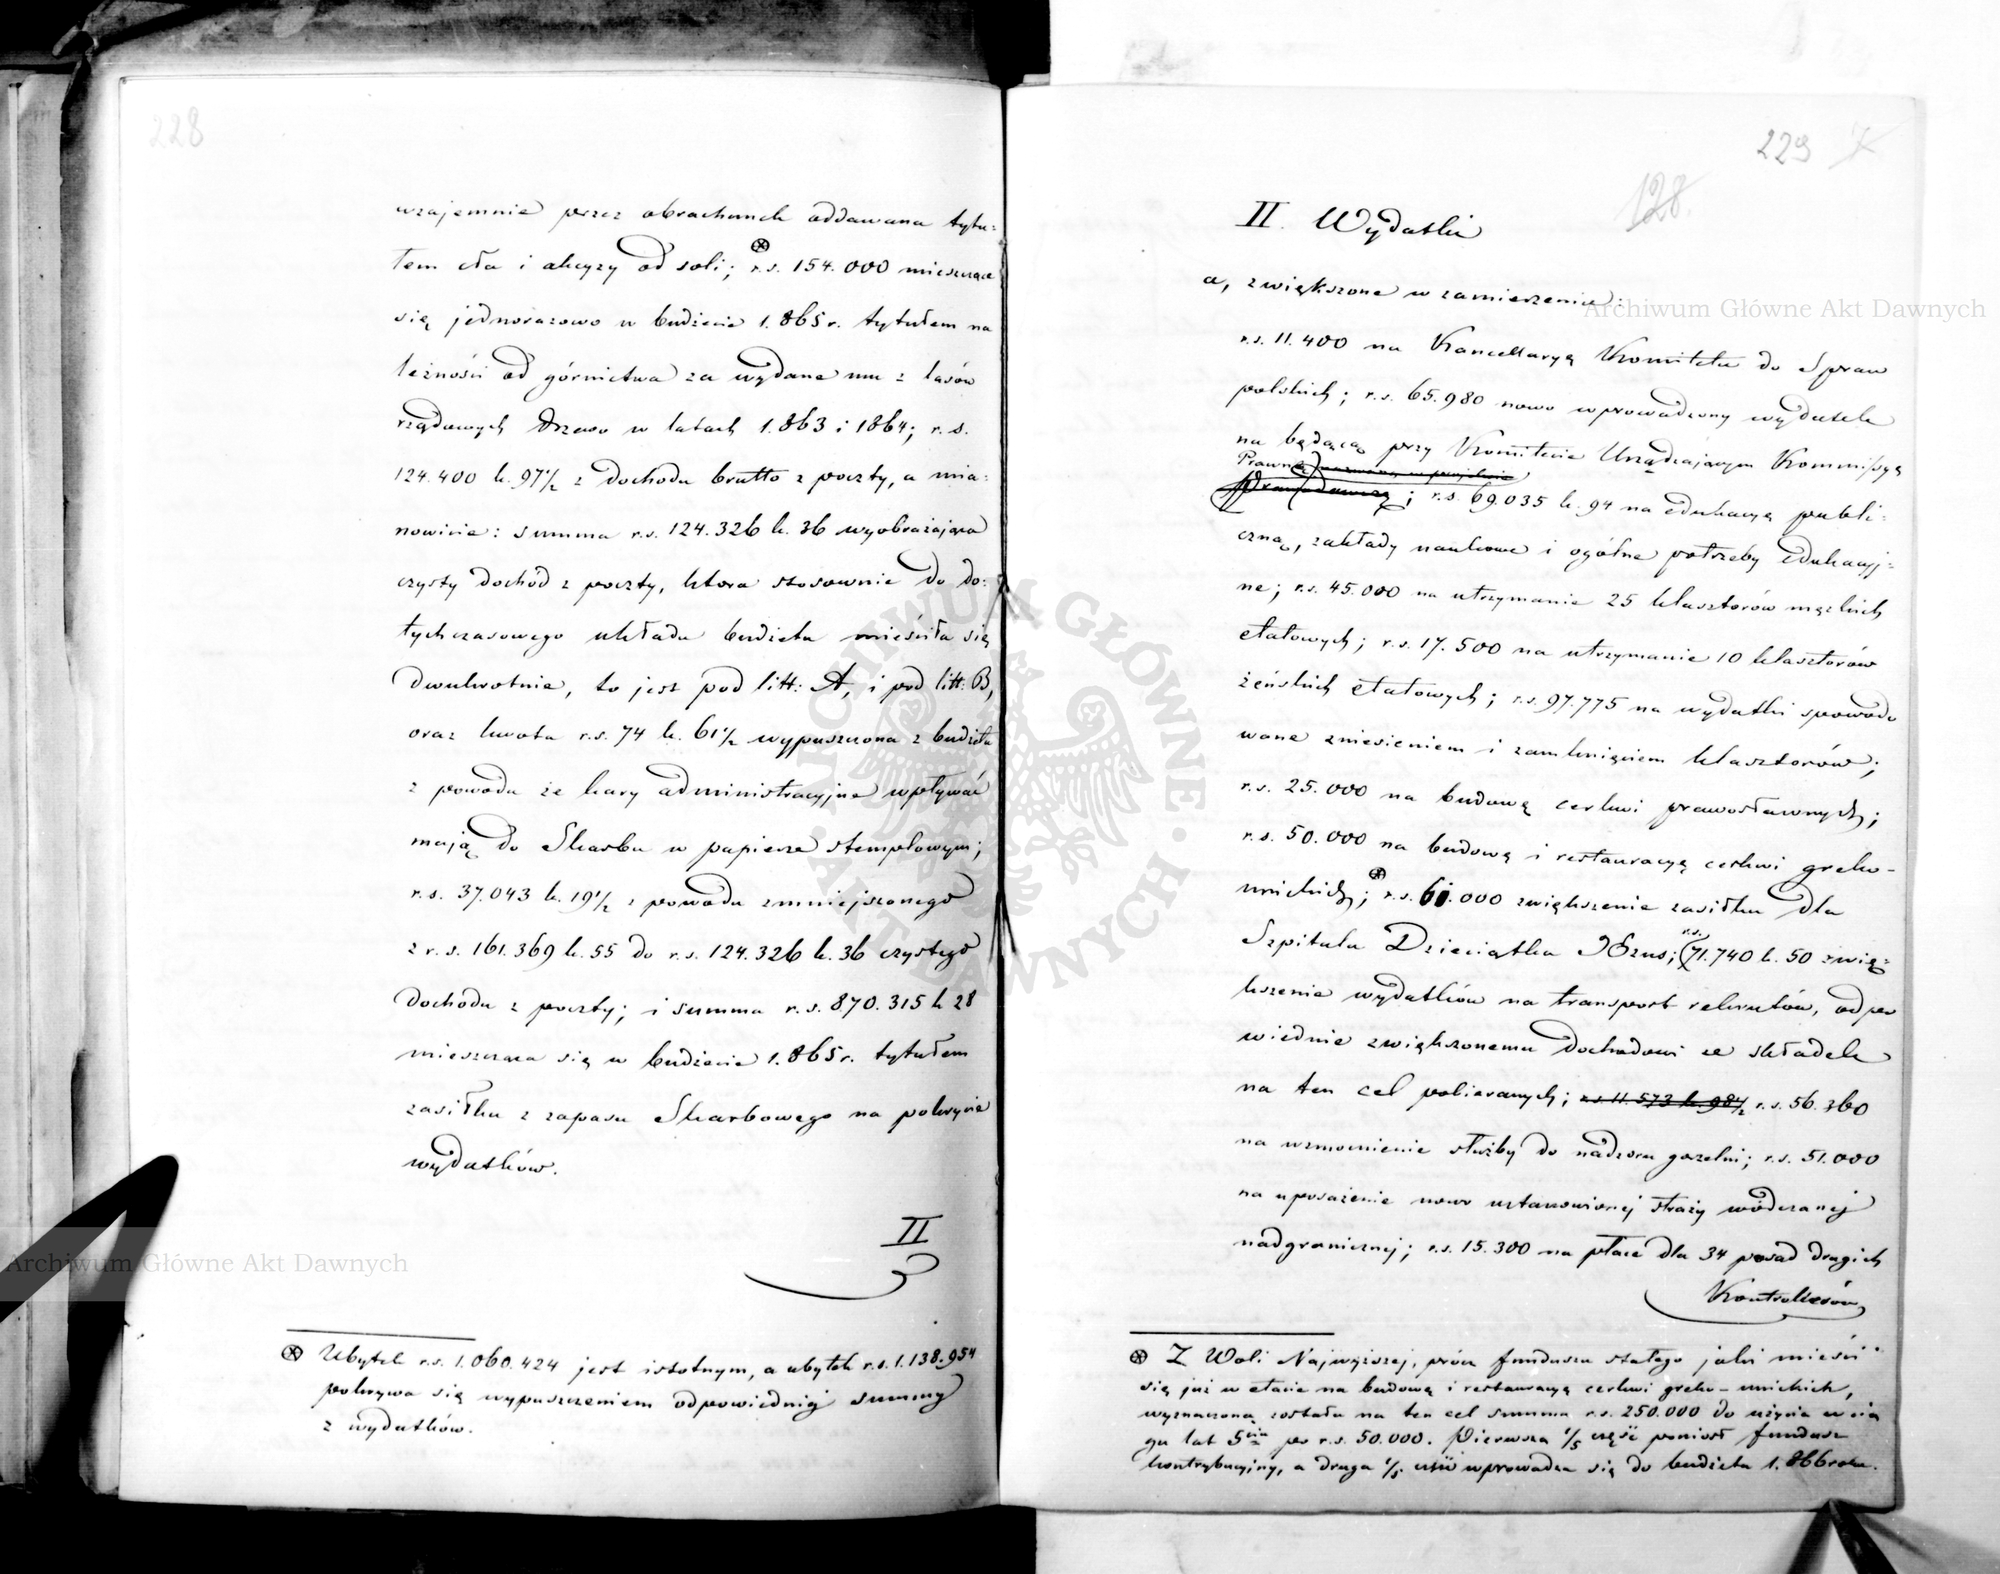 228
wzajemnie przez obrachunek oddawana tytu=
łem cła i akcyzy od soli; ⊗ r.s. 154.000 mieszcząca
się jednorazowo w budżecie 1.865 r. tytułem na
leżności od górnictwa za wydane mu z lasów
rządowych drzewo w latach 1.863 i 1864; r.s.
124.400 k. 97½ z dochodu brutto z poczty, a mia=
nowicie: summa r.s. 124.326 k. 36 wyobrażająca
czysty dochód z poczty, która stosownie do do=
tychczasowego układu budżetu mieściła się
dwukrotnie, to jest pod litt: A, i pod litt: B,
oraz kwota r.s. 74 k. 61½ wypuszczona z budżetu
z powodu że kary administracyjne wpływać
mają do Skarbu w papierze stemplowym;
r.s. 37.043 k. 19½ z powodu zmniejszonego
z r.s. 161.369 k. 55 do r.s. 124.326 k. 36 czystego
dochodu z poczty; i summa r.s. 870.315 k 28
mieszcząca się w budżecie 1.865 r. tytułem
zasiłku z zapasu Skarbowego na pokrycie
wydatków.
II
⊗ Ubytek r.s. 1.060.424 jest istotnym, a ubytek r.s. 1.138.954
pokrywa się wypuszczeniem odpowiedniej summy
z wydatków.
229
128.
II. Wydatki
a, zwiększone w zamierzeniu:
r.s. 11.400 na Kancellaryą Komitetu do Spraw
polskich; r.s. 65.980 nowo wprowadzony wydatek
na będącą przy Komitecie Urządzającym Kommissyą
Prawną
; r.s. 69.035 k. 94 na edukacyą publi=
czną, zakłady naukowe i ogólne potrzeby edukacyj=
ne; r.s. 45.000 na utrzymanie 25 klasztorów męzkich
etatowych; r.s. 17.500 na utrzymanie 10 klasztorów
żeńskich etatowych; r.s. 97.775 na wydatki spowodo
wane zniesieniem i zamknięciem klasztorów;
r.s. 25.000 na budowę cerkwi prawosławnych;
r.s. 50.000 na budowę i restauracyą cerkwi greko-
unickich; ⊗ r.s. .000 zwiększenie zasiłku dla
Szpitala Dzieciątka Jezus; r.s. 71.740 k. 50 zwię=
kszenie wydatków na transport rekrutów, odpo
wiednie zwiększonemu dochodowi ze składek
na ten cel pobieranych; r.s. 11.573 k. 98½ r.s. 56.360
na wzmocnienie służby do nadzoru gorzelni; r.s. 51.000
na uposażenie nowo ustanowionej straży wódczanej
nadgranicznej; r.s. 15.300 na płace dla 34 posad drugich
Kontrollerów
⊗ Z Woli Najwyższej, prócz funduszu stałego jaki mieści
się już w etacie na budowę i restauracyą cerkwi greko-unickich,
wyznaczoną została na ten cel summa r.s. 250.000 do użycia w cią
gu lat 5ciu po r.s. 50.000. Pierwszą 1/5 część poniósł fundusz
kontrybucyjny, a druga 1/5 część wprowadza się do budżetu 1.866 roku.
Archiwum Główne Akt Dawnych
Archiwum Główne Akt Dawnych
ARCHIWUM GŁÓWNE · AKT DAWNYCH ·